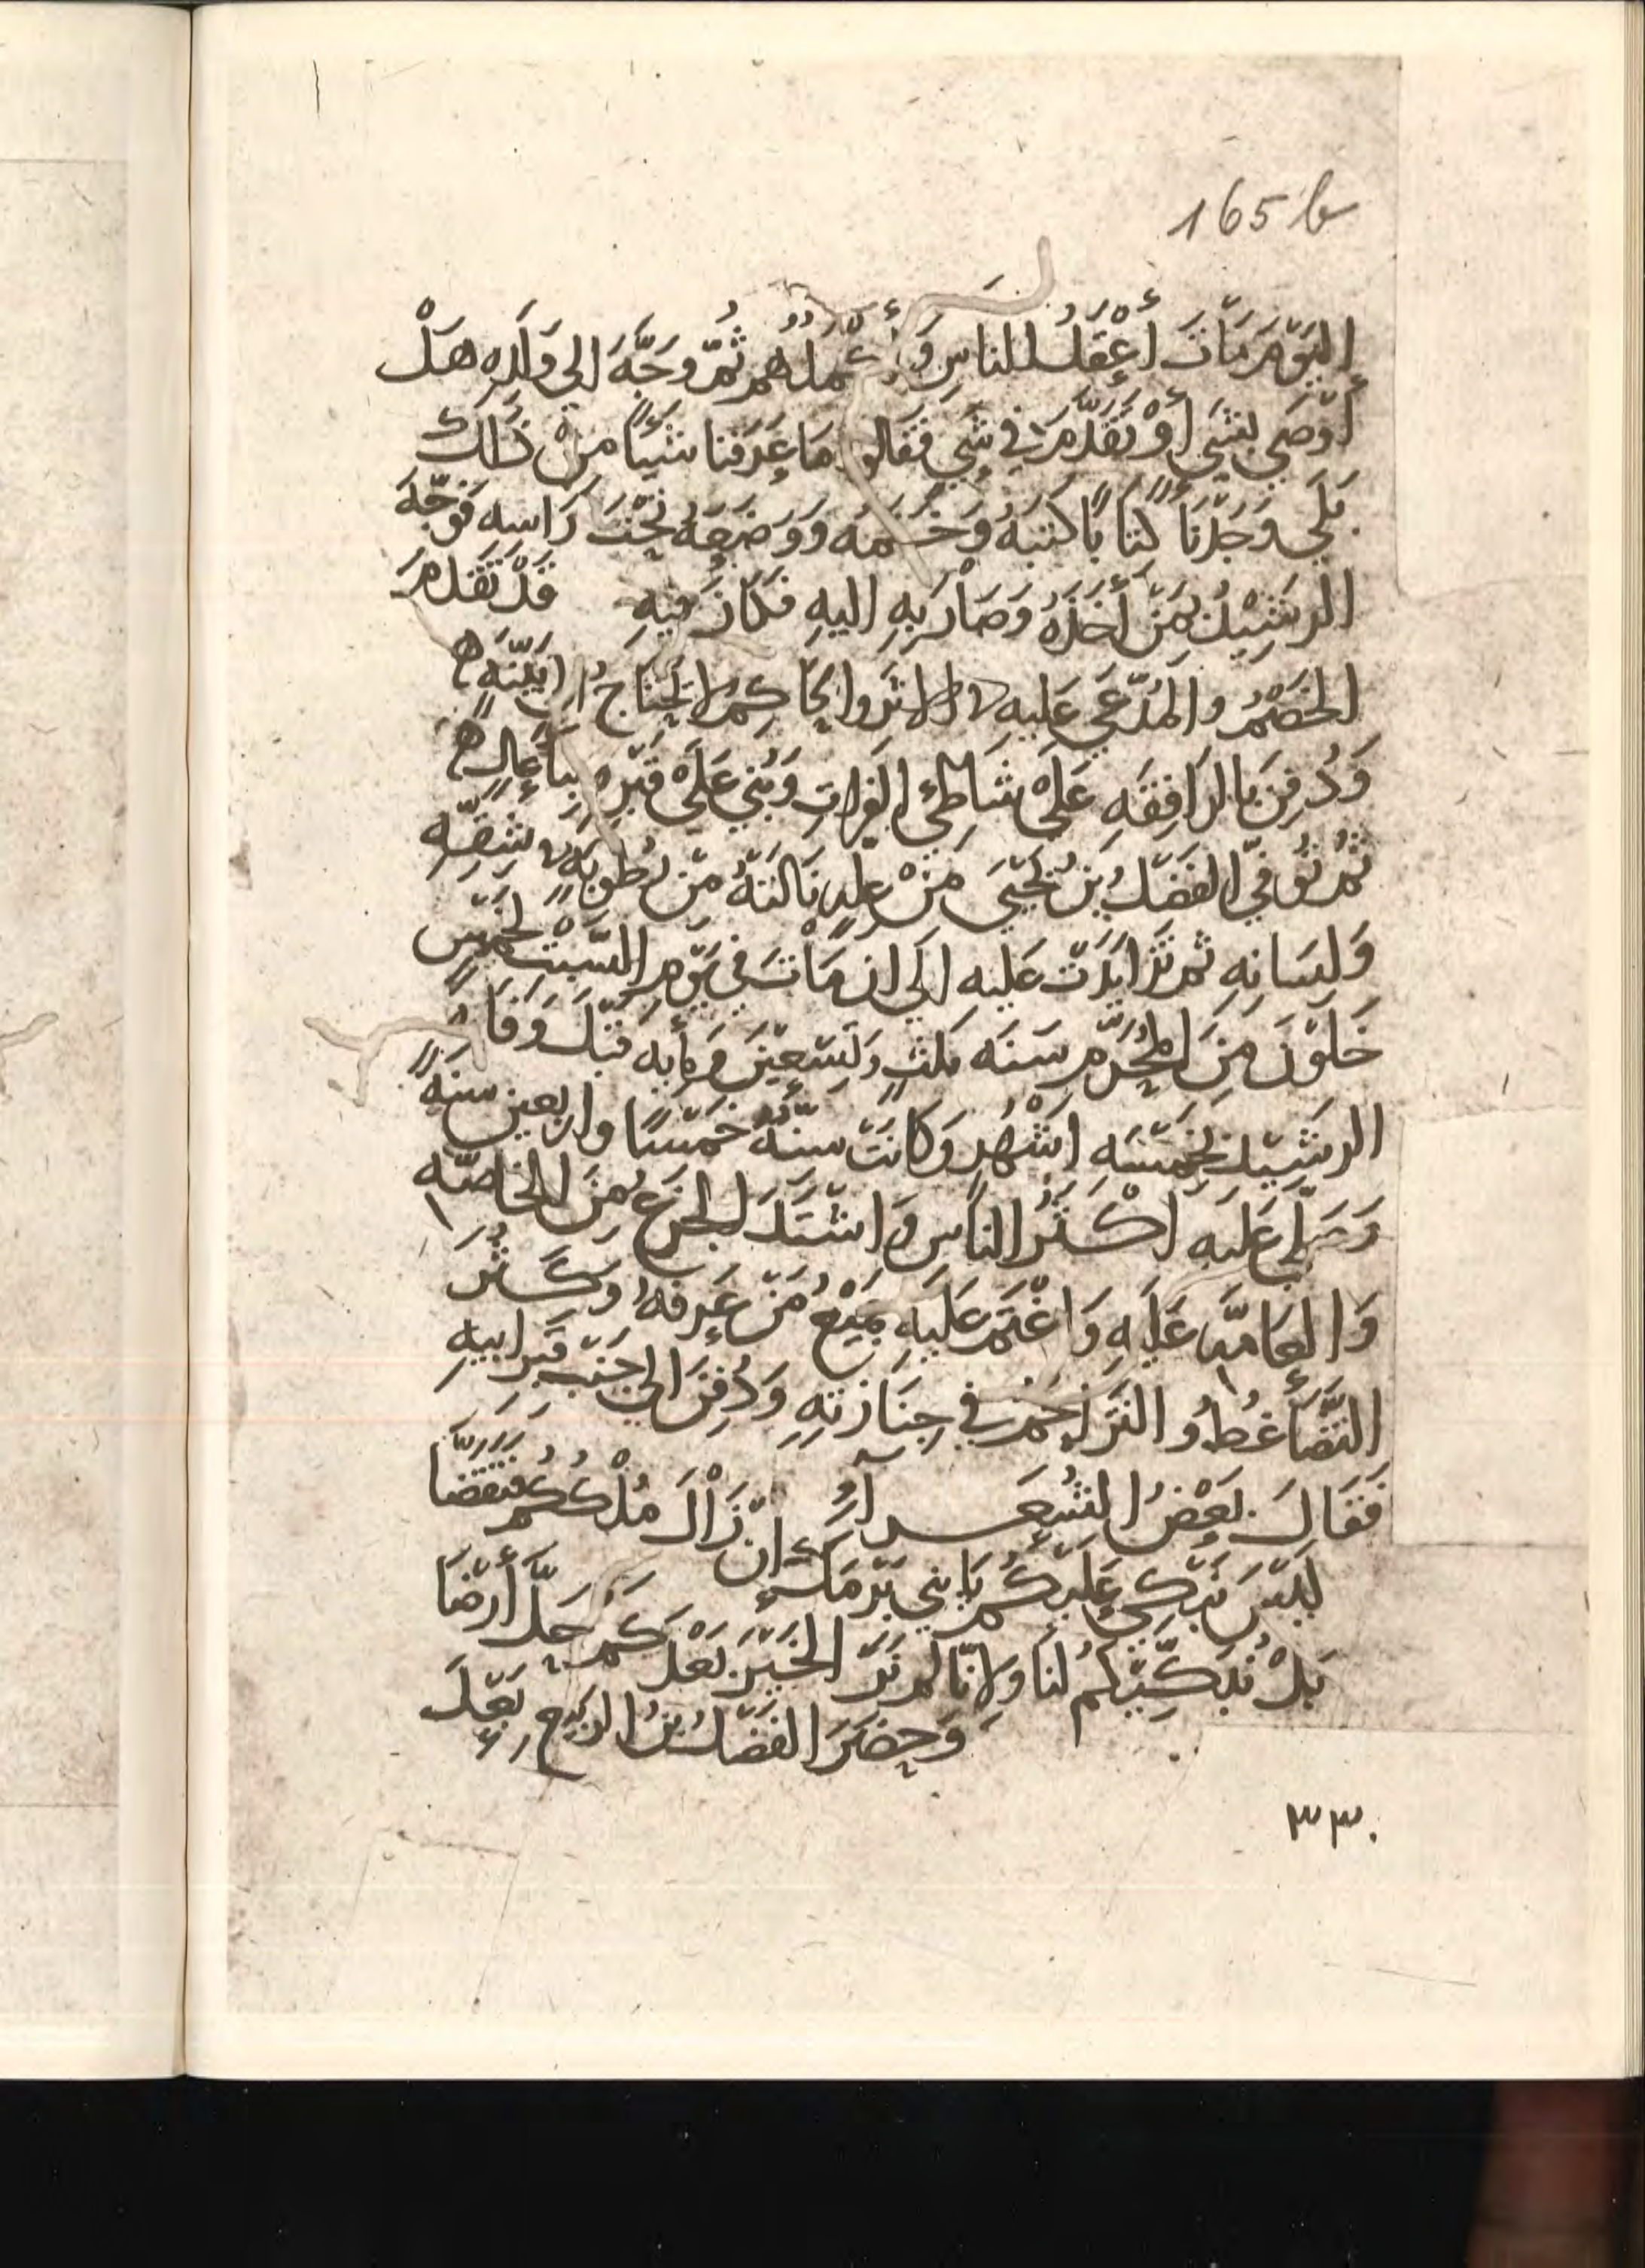 165 b
اليَوْمَ مَاتَ أَعْقَلُ الناسِ وَأَكْمَلُهُم ثُمَّ وَجَّهَ الى وَلَدِهِ هَلْ
أَوْصَى بشَىٍ أَوْ تَقَدَّمَ فى شَىٍ فَقَالوا مَا عَرَفنا شَيئًا مِنْ ذَلكَ
بَلَى وَجَدْنَا كتَابًا كتَبَهُ وَخَتَمَهُ وَوَضَعَهُ تَحْتَ رَاسِهِ فَوَجَّهَ
الرشِيْدُ بمَنْ أَخَذَهُ وَصَارَ بِهِ اليهِ فكَانَ فيهِ قَدْ تَقَدمَ
الخَصْمُ والمُدَّعَى عَليهِ بالاثر والحَاكِمُ لا يَحتَاجُ الى بَيّنَهٍ
وَدُفِنَ بالرَافِقَهِ عَلَى شَاطِئ الفُرَاتِ وَبُنِى عَلَى قَبْرِهِ بنَا عالٍ
ثُمَّ تُوُفىَ الفَضْلُ بنُ يَحْيَى مِنْ علهٍ نَالَتهُ مِنْ رُطوبَهٍ فى شِقِّهِ
وَلسَانِهِ ثم تَزَايَدَتْ عَليه الَى ان مَاتَ فى يَوْمِ السَّبْتِ لخَمْسٍ
خَلَوْنَ مِنَ المُحَرَّمِ سَنَه ثلثٍ وَتِسْعِيْنَ ومِأَيه قَبْلَ وَفَاهِ
الرشِيْدِ بخَمْسَهِ اشْهُرٍ وَكَانَتْ سنُّهُ خَمْسًا واربعين سنهً
وَصَلّى عَليهِ اكْثَرُ الناسِ وَاشْتَدَ الجَزَعُ مِنَ الخَاصَّه
وَالعَامَّه عَلَيهِ وَاغْتَمَ عَلَيهِ جَمِيْعُ مَنْ عَرَفهُ وكَثُرَ
التَّضَاغُطُ والتَزاحُمُ فى جِنَازتِهِ وَدُفِنَ الى جَنْبِ قَبْرِ ابيهِ
فَقَالَ بَعْضُ الشُعَرآءِ
لَيْسَ نَبْكى عَلَيْكُم يَا بنى بَرْمَكٍ انْ زَالَ مُلْكُكُم فتَقَضَّا
بَلْ نُبَكِّيْكُمُ لنَا وَلانّا لم نَرَ الخَيْرَ بَعْدَكُم حَلَّ أَرْضَا
وَحضَرَ الفَضْلُ بنُ الرَبيْعِ بَعْدَ
٣٣٠